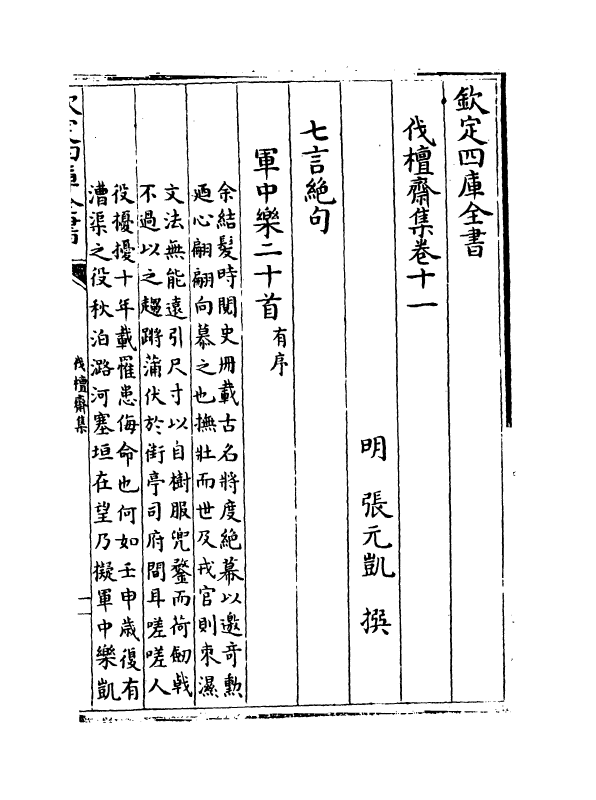 欽定四庫全書
伐檀齋集卷十一
明　張元凱　撰
七言絶句
軍中樂二十首有序
余結髮時閱史冊載古名將度絶幕以邀竒勲
廼心翩翩向慕之也撫壯而世及戎官則束濕
文法無能遠引尺寸以自樹服兜鍪而荷劒㦸
不過以之趨蹡蒲伏於街亭司府間耳嗟嗟人
役擾擾十年載罹患侮命也何如壬申嵗復有
漕渠之役秋泊潞河塞垣在望乃擬軍中樂凱
欽定四庫全書
伐檀齋集
一